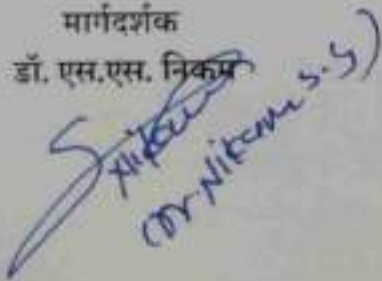 मार्गदर्शक
डॉ. एस.एस. निकम
Snikam
(Dr. Nikam S.S)